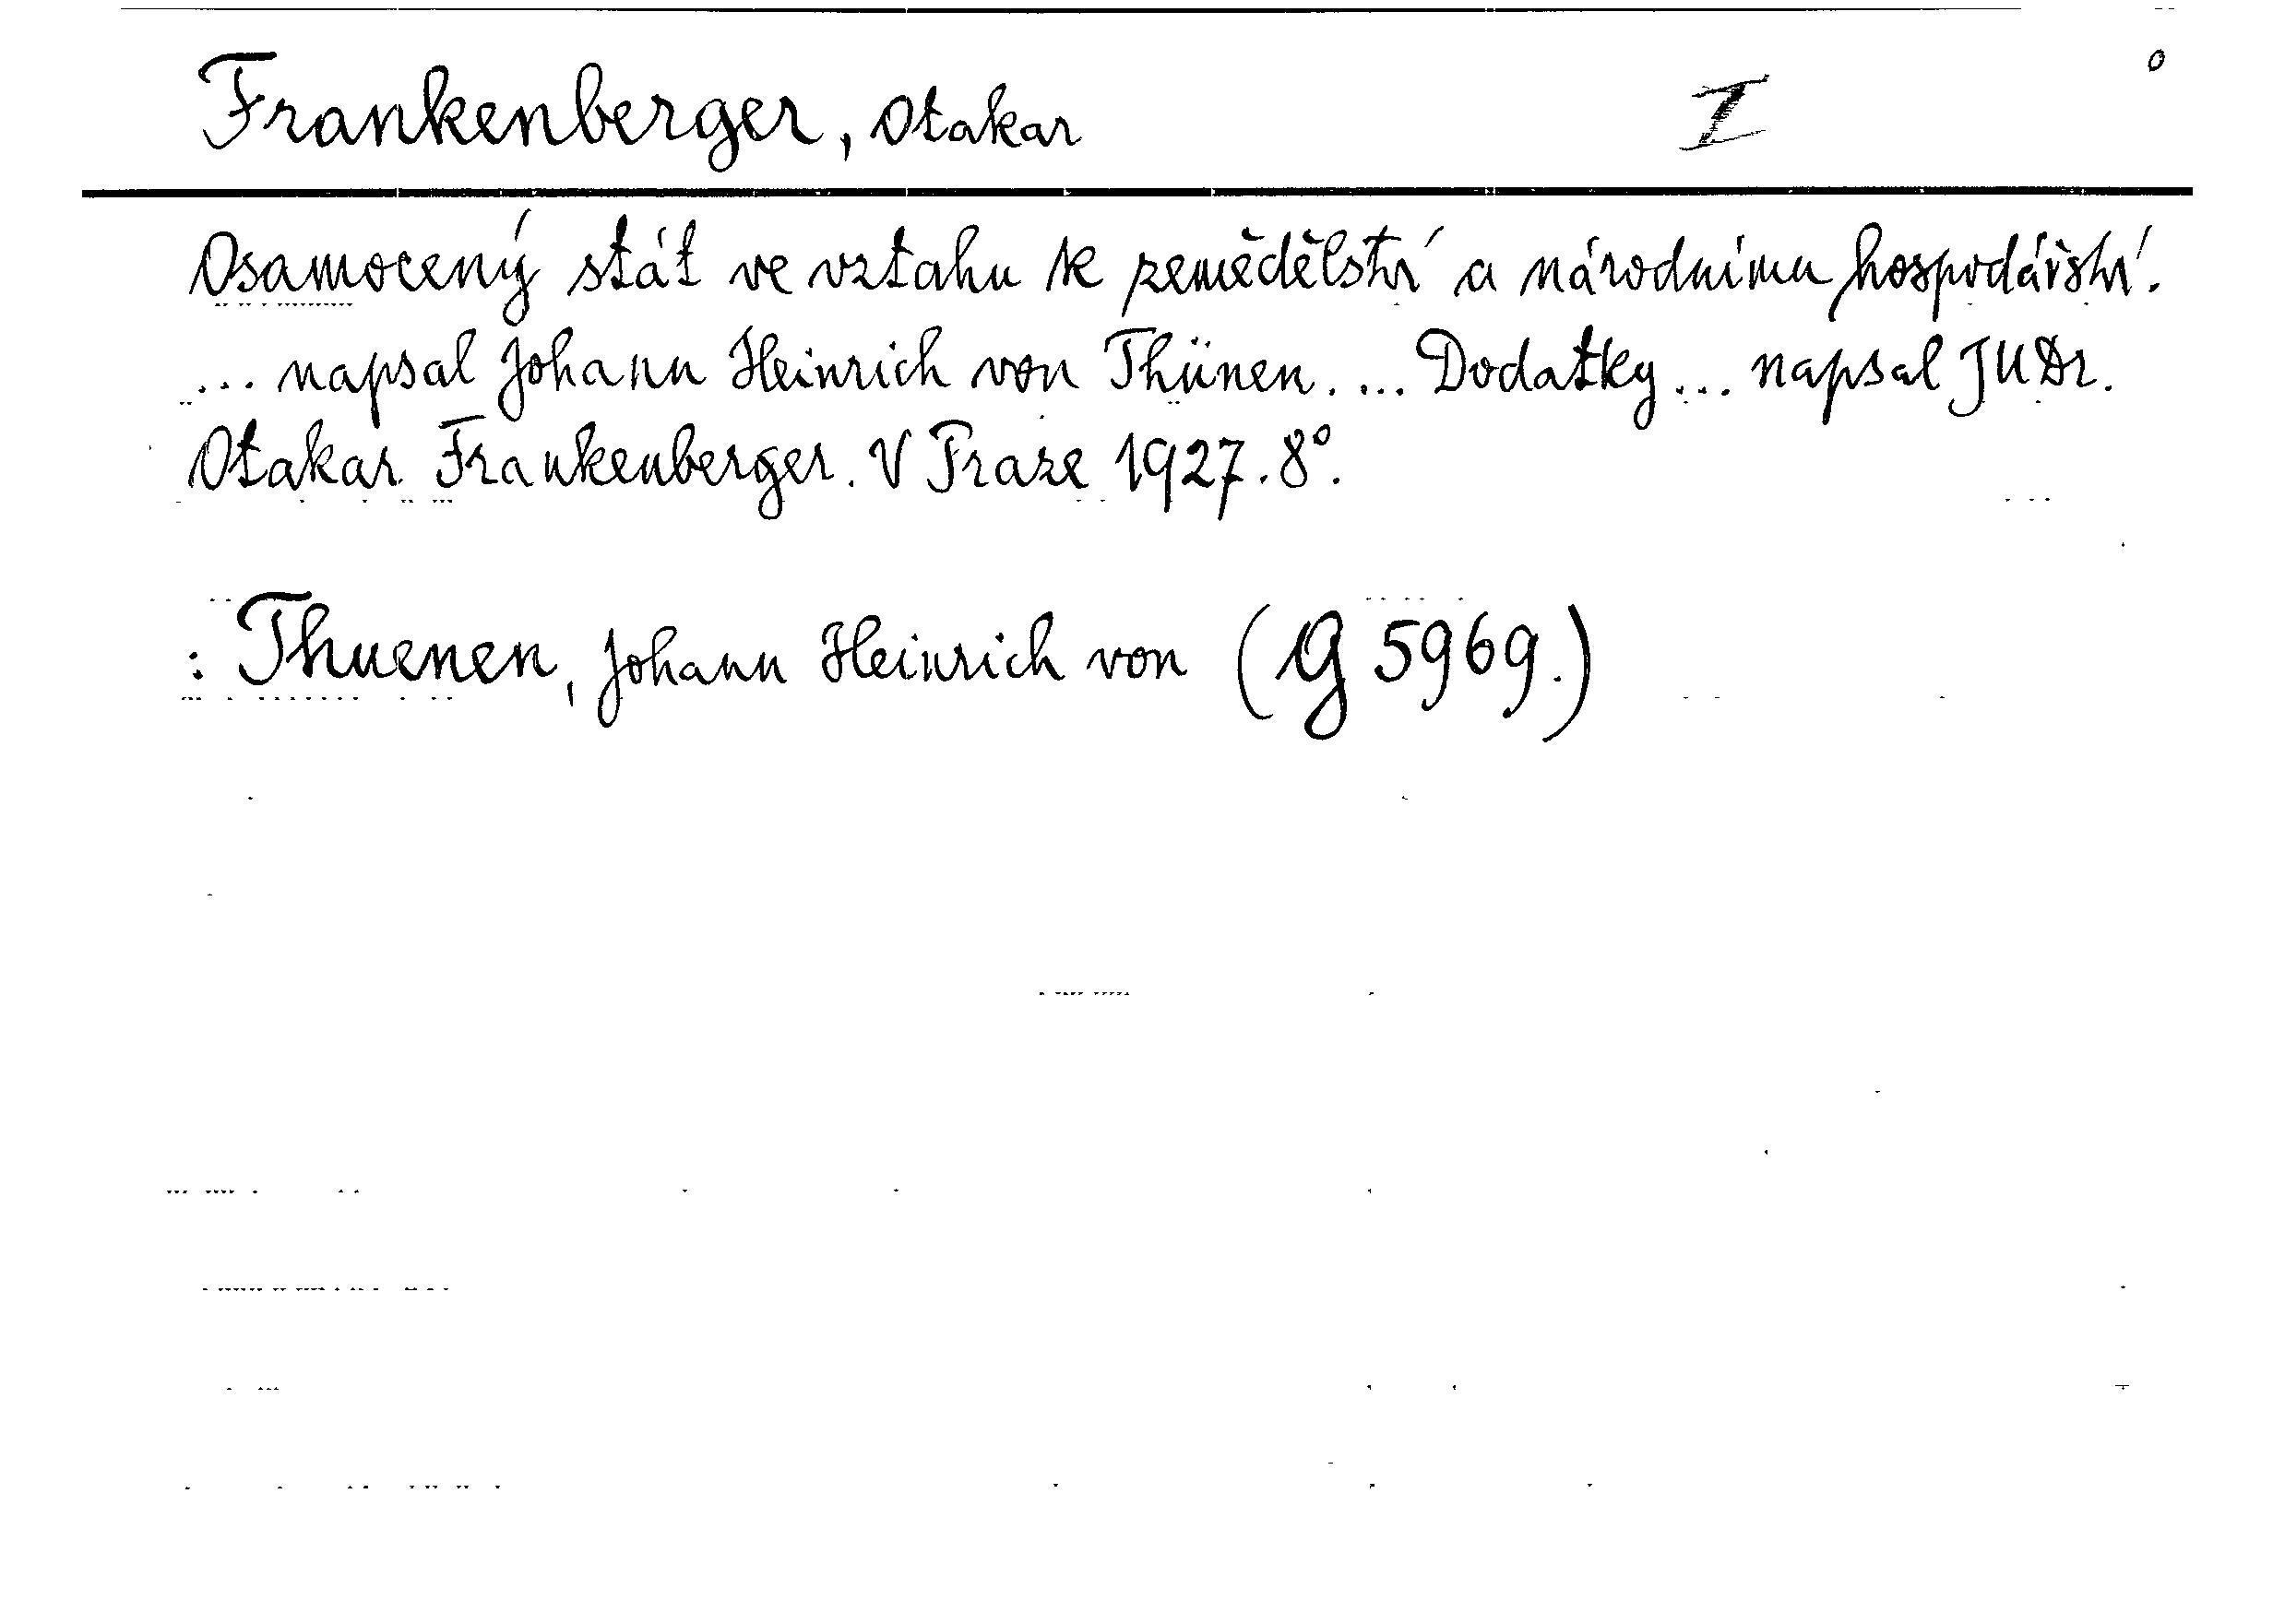 Frankenberger, Otakar I o
Osamocený stát ve vztahu k zemědělství a národnímu hospodářství.
... napsal Johann Heinrich von Thünen. ... Dodatky ... napsal JUDr.
Otakar Frankenberger. V Praze 1927. 8°.
: Thuenen, Johann Heinrich von (G 5969.)